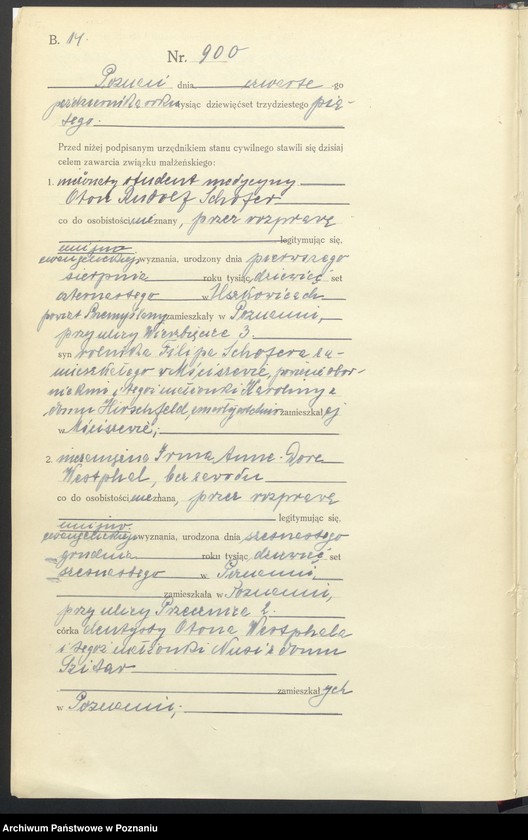 B. 14.
Nr. 900
Poznań dnia czwartego
października roku tysiąc dziewięćset trzydziestego pią-
tego.
Przed niżej podpisanym urzędnikiem stanu cywilnego stawili się dzisiaj
celem zawarcia związku małżeńskiego:
1. nieżonaty student medycyny
Oton Rudolf Schäfer
co do osobistości nieznany, przez rozprawę
legitymując się,
unijno
ewangelickiego wyznania, urodzony dnia pierwszego
sierpnia roku tysiąc dziewięć set
czternastego w Uszkowicach
powiat Przemyślany zamieszkały w Poznaniu,
przy ulicy Wierzbięcice 3.
syn rolnika Filipa Schäfera za-
mieszkałego w Mściszewie, powiat obor-
nicki i tegoż małżonki Karoliny z
domu Hirschfeld, zamieszkałej
w Mściszewie;
2. niezamężna Irma Anna Dora
Westphal, bez zawodu
co do osobistości nieznana, przez rozprawę
legitymując się,
unijno
ewangelickiego wyznania, urodzona dnia szesnastego
grudnia roku tysiąc dziewięć set
szesnastego w Poznaniu,
zamieszkała w Poznaniu,
przy ulicy Przecznica
córka dentysty Otona Westphala
i tegoż małżonki z domu
zamieszkałych
w Poznaniu;
Archiwum Państwowe w Poznaniu